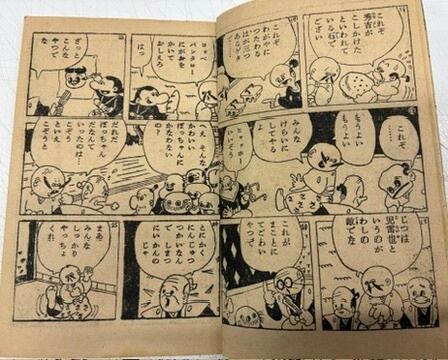 これぞ
秀吉が
こしかけた
といわれて
いる石で
ござい
これぞ
わがやに
つたわる
はが三つ
あるゲタ
これぞ
……
もうよい
もうよい
みんな
けらいに
してやる
よ
じつは
児雷也と
いうのが
わしの
敵でな
これが
まことに
てごわい
やつで
コッペ
パンタロー
にがおを
かいて
おしえろ
はっ
ざっと
こんな
やつで
な
へえ そんな
かわいい
ぼっちゃんに
かなわない
の？
だれだ
ぼっちゃん
だなんて
いったのは！
こぞう
といえ、
こぞうと
とにかく
にんじゅつ
つかいなん
にゃっかい
じゃ
まあ
みんな
しっかり
やっちょ
くれ